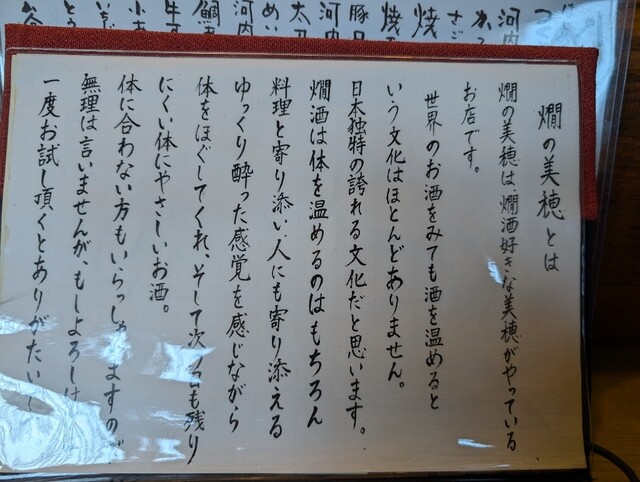 燗の美穂とは
燗の美穂は、燗酒好きな美穂がやっている
お店です。
世界のお酒をみても酒を温めると
いう文化はほとんどありません。
日本独特の誇れる文化だと思います。
燗酒は体を温めるのはもちろん
料理と寄り添い、人にも寄り添える
ゆっくり酔った感覚を感じながら
体をほぐしてくれ、そして次の日も残り
にくい体にやさしいお酒。
体に合わない方もいらっしゃいますので
無理は言いませんが、もしよろしけ
一度お試し頂くとありがたい
河内
焼
豚
河内
太刀
めい
河内
鯛
牛す